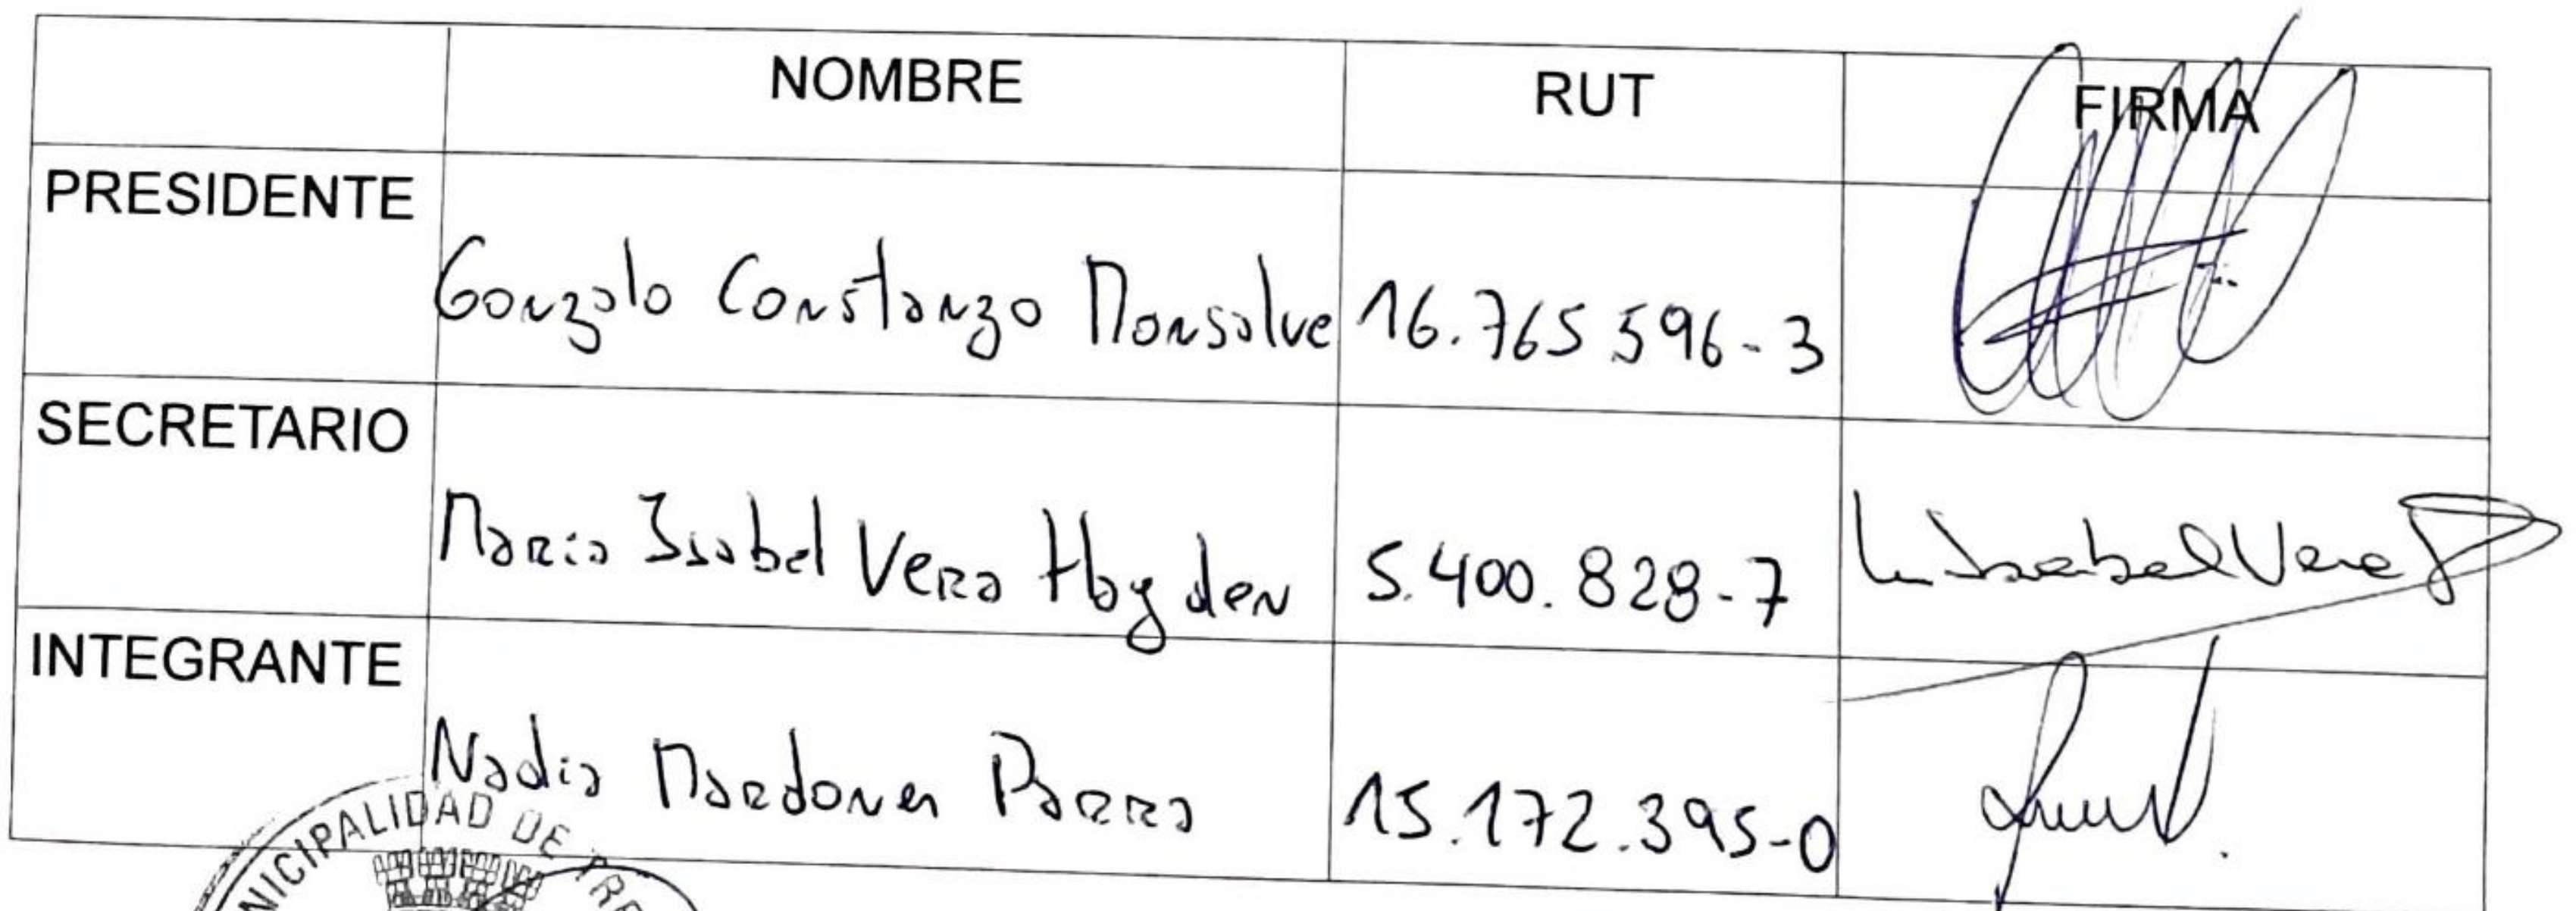 NOMBRE RUT FIRMA
PRESIDENTE
Gonzalo Constanzo Monsalve 16.765 596-3
SECRETARIO
Maria Isabel Vera Hayden 5.400.828-7 Isabel Vera
INTEGRANTE
Nadia Mardones Parra 15.172.395-0
NICIPALIDAD DE TRE